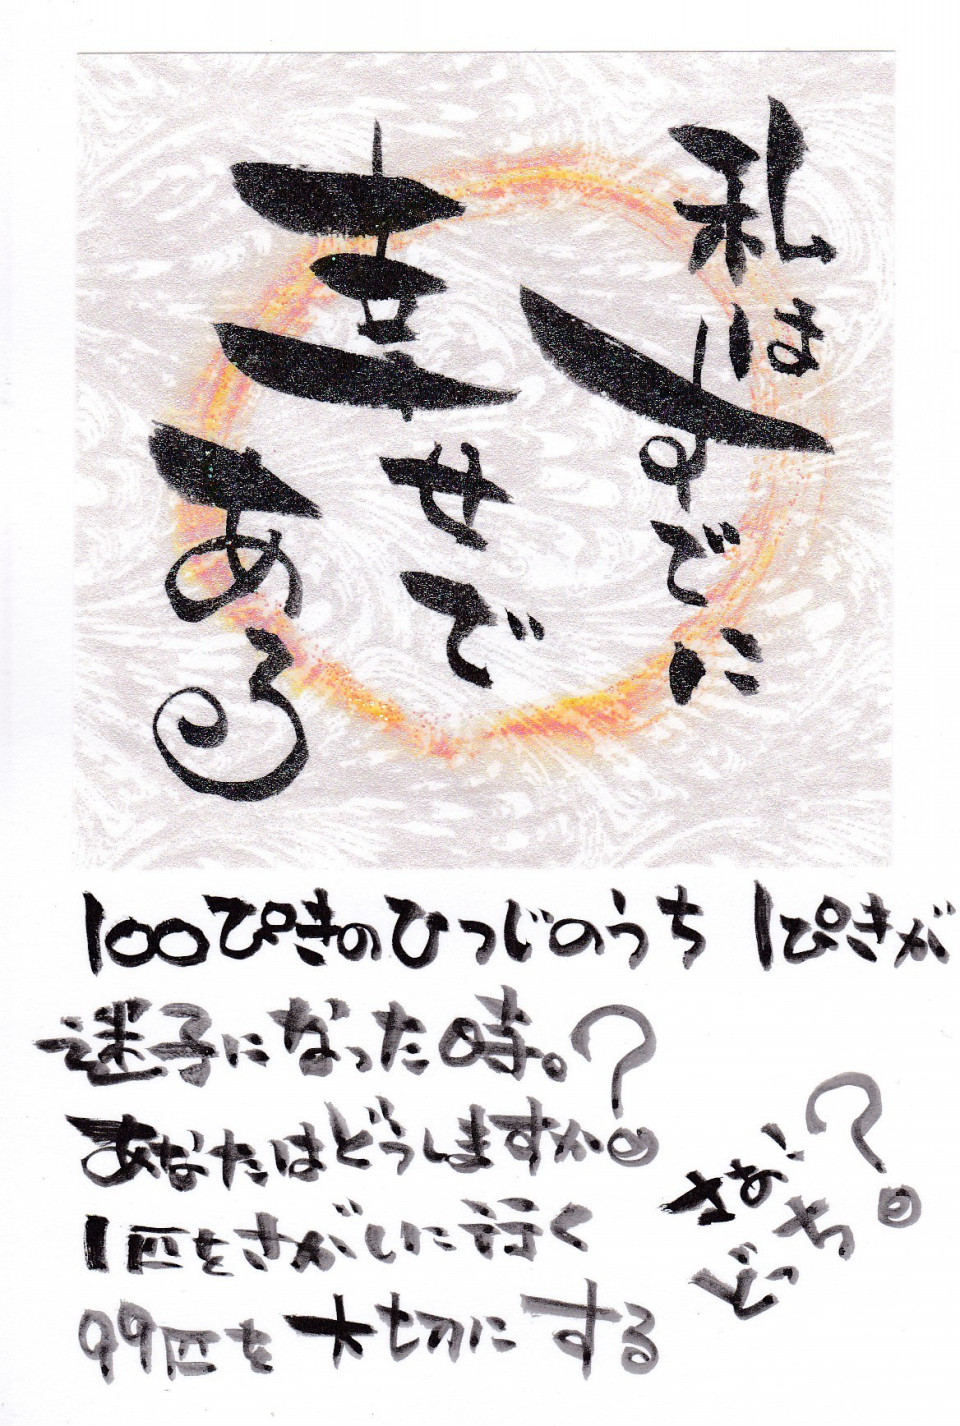 私は
すでに
幸せで
ある
100ぴきのひつじのうち 1ぴきが
迷子になった時。?
あなたはどうしますか。
1匹をさがしに行く
99匹を大切にする
さあ!
どっち?